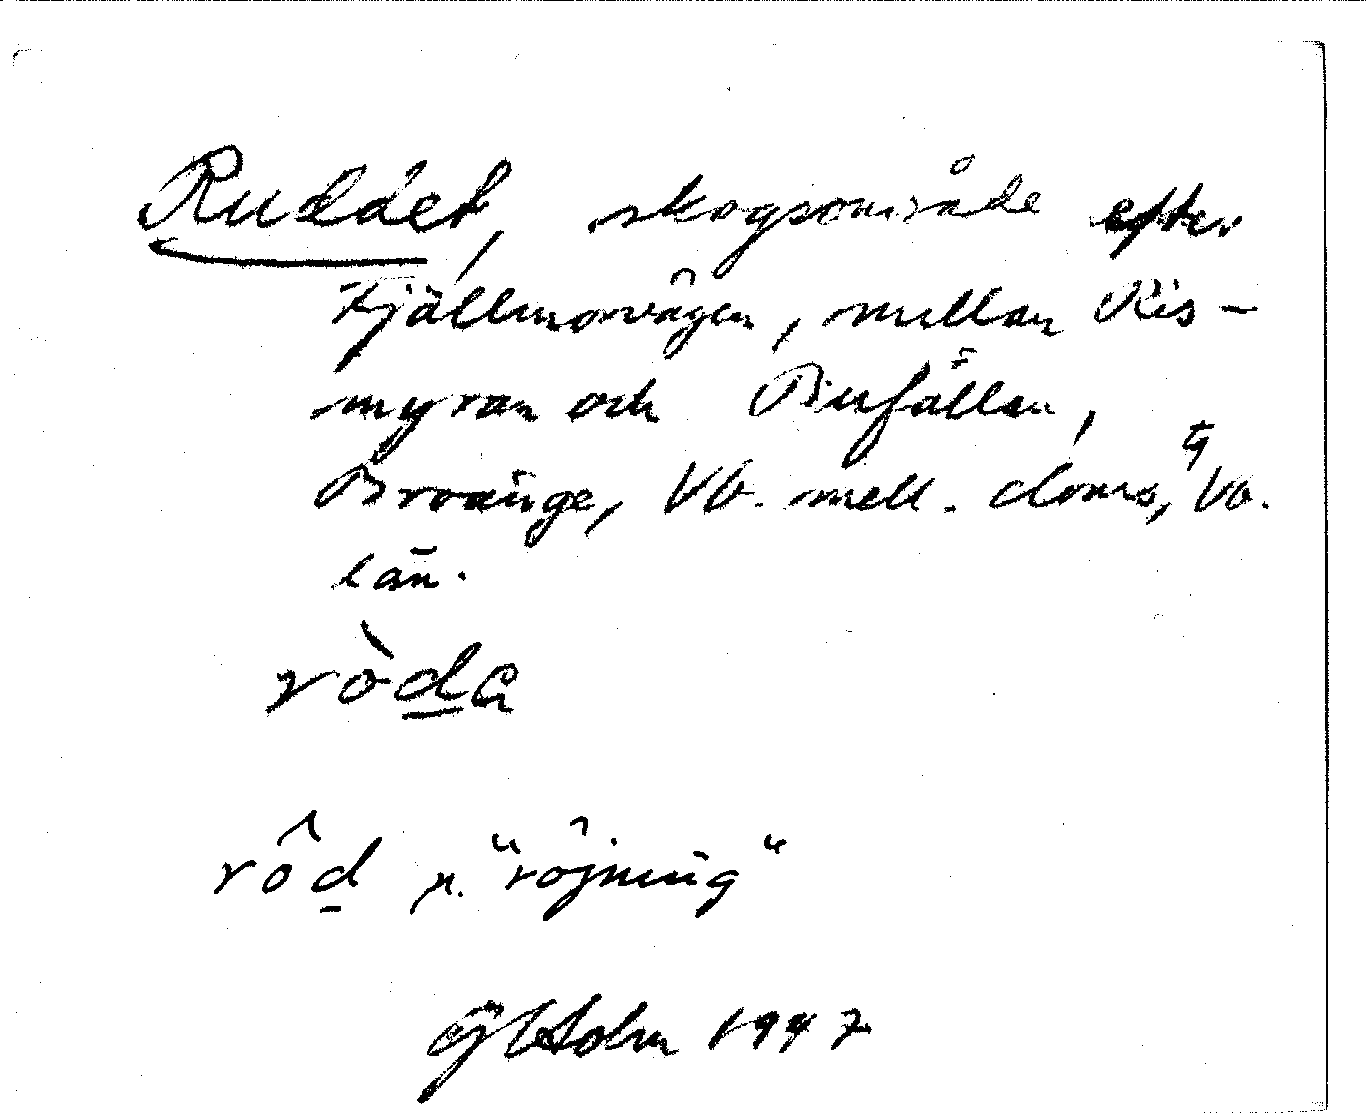 Ruddet, skogsområde efter
Fjällmovägen, mellan Ris-
myran och Binfållan,
Broänge, Vb. mell. doms, Vb.
län.
ròda
rôd n. "röjning"
Holm 1947